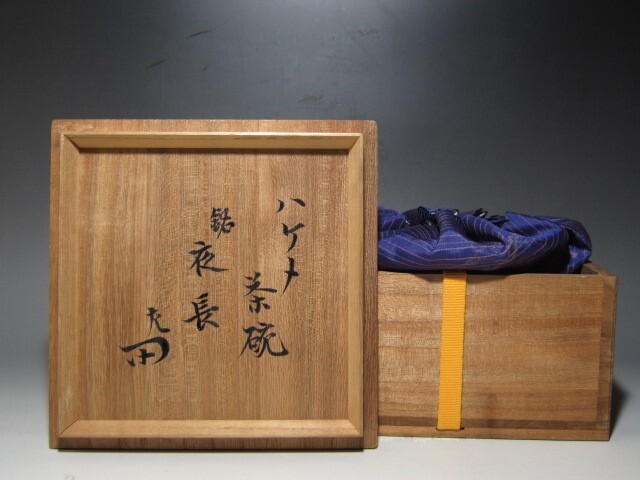 ハケメ
茶碗
銘
夜長